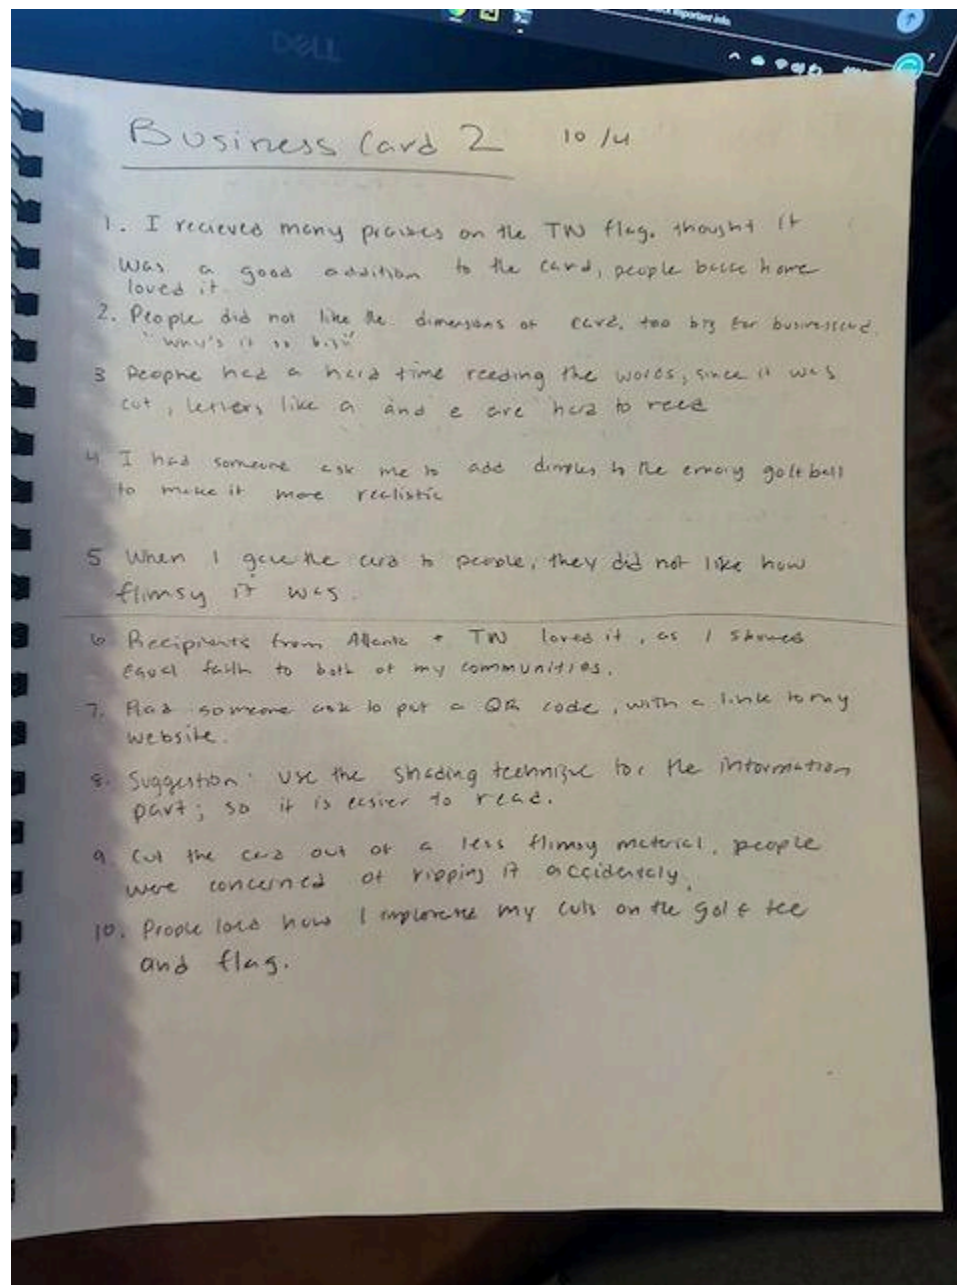 important info.
DELL
Business Card 2 10/4
1. I recieved many praises on the TW flag. thought it
was a good addition to the card, people back home
loved it.
2. People did not like the dimensions of card, too big for businesscard.
"Why's it so big"
3 People had a hard time reading the words, since it was
cut, letters like a and e are hard to read
4 I had someone ask me to add dimples to the emory golf ball
to make it more realistic
5 When I gave the card to people, they did not like how
flimsy it was.
6 Recipients from Atlanta + TW loved it, as I showed
equal faith to both of my communities.
7. Had someone ask to put a QR code, with a link to my
website.
8. Suggestion: use the shading technique for the information
part; so it is easier to read.
9. Cut the card out of a less flimsy material, people
were concerned of ripping it accidentaly.
10. People how I my cuts on the golf tee
and flag.